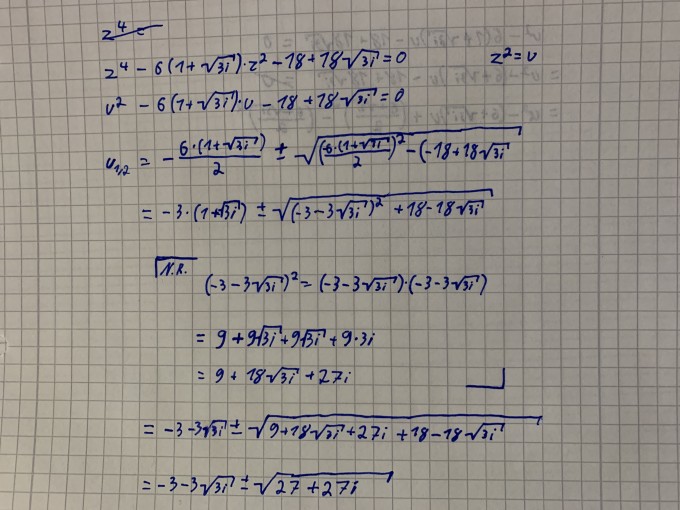 z⁴ =
z⁴ - 6(1+√3i)·z² - 18 + 18√3i = 0 z² = u
u² - 6(1+√3i)·u - 18 + 18√3i = 0
u₁,₂ = - 6·(1+√3i)/2 ± √((6·(1+√3i)/2)² - (-18+18√3i
= -3·(1+√3i) ± √((-3-3√3i)² + 18 - 18√3i
N.R.
(-3-3√3i)² = (-3-3√3i)·(-3-3√3i)
= 9 + 9√3i + 9√3i + 9·3i
= 9 + 18√3i + 27i
= -3-3√3i ± √(9+18√3i+27i+18-18√3i
= -3-3√3i ± √(27+27i